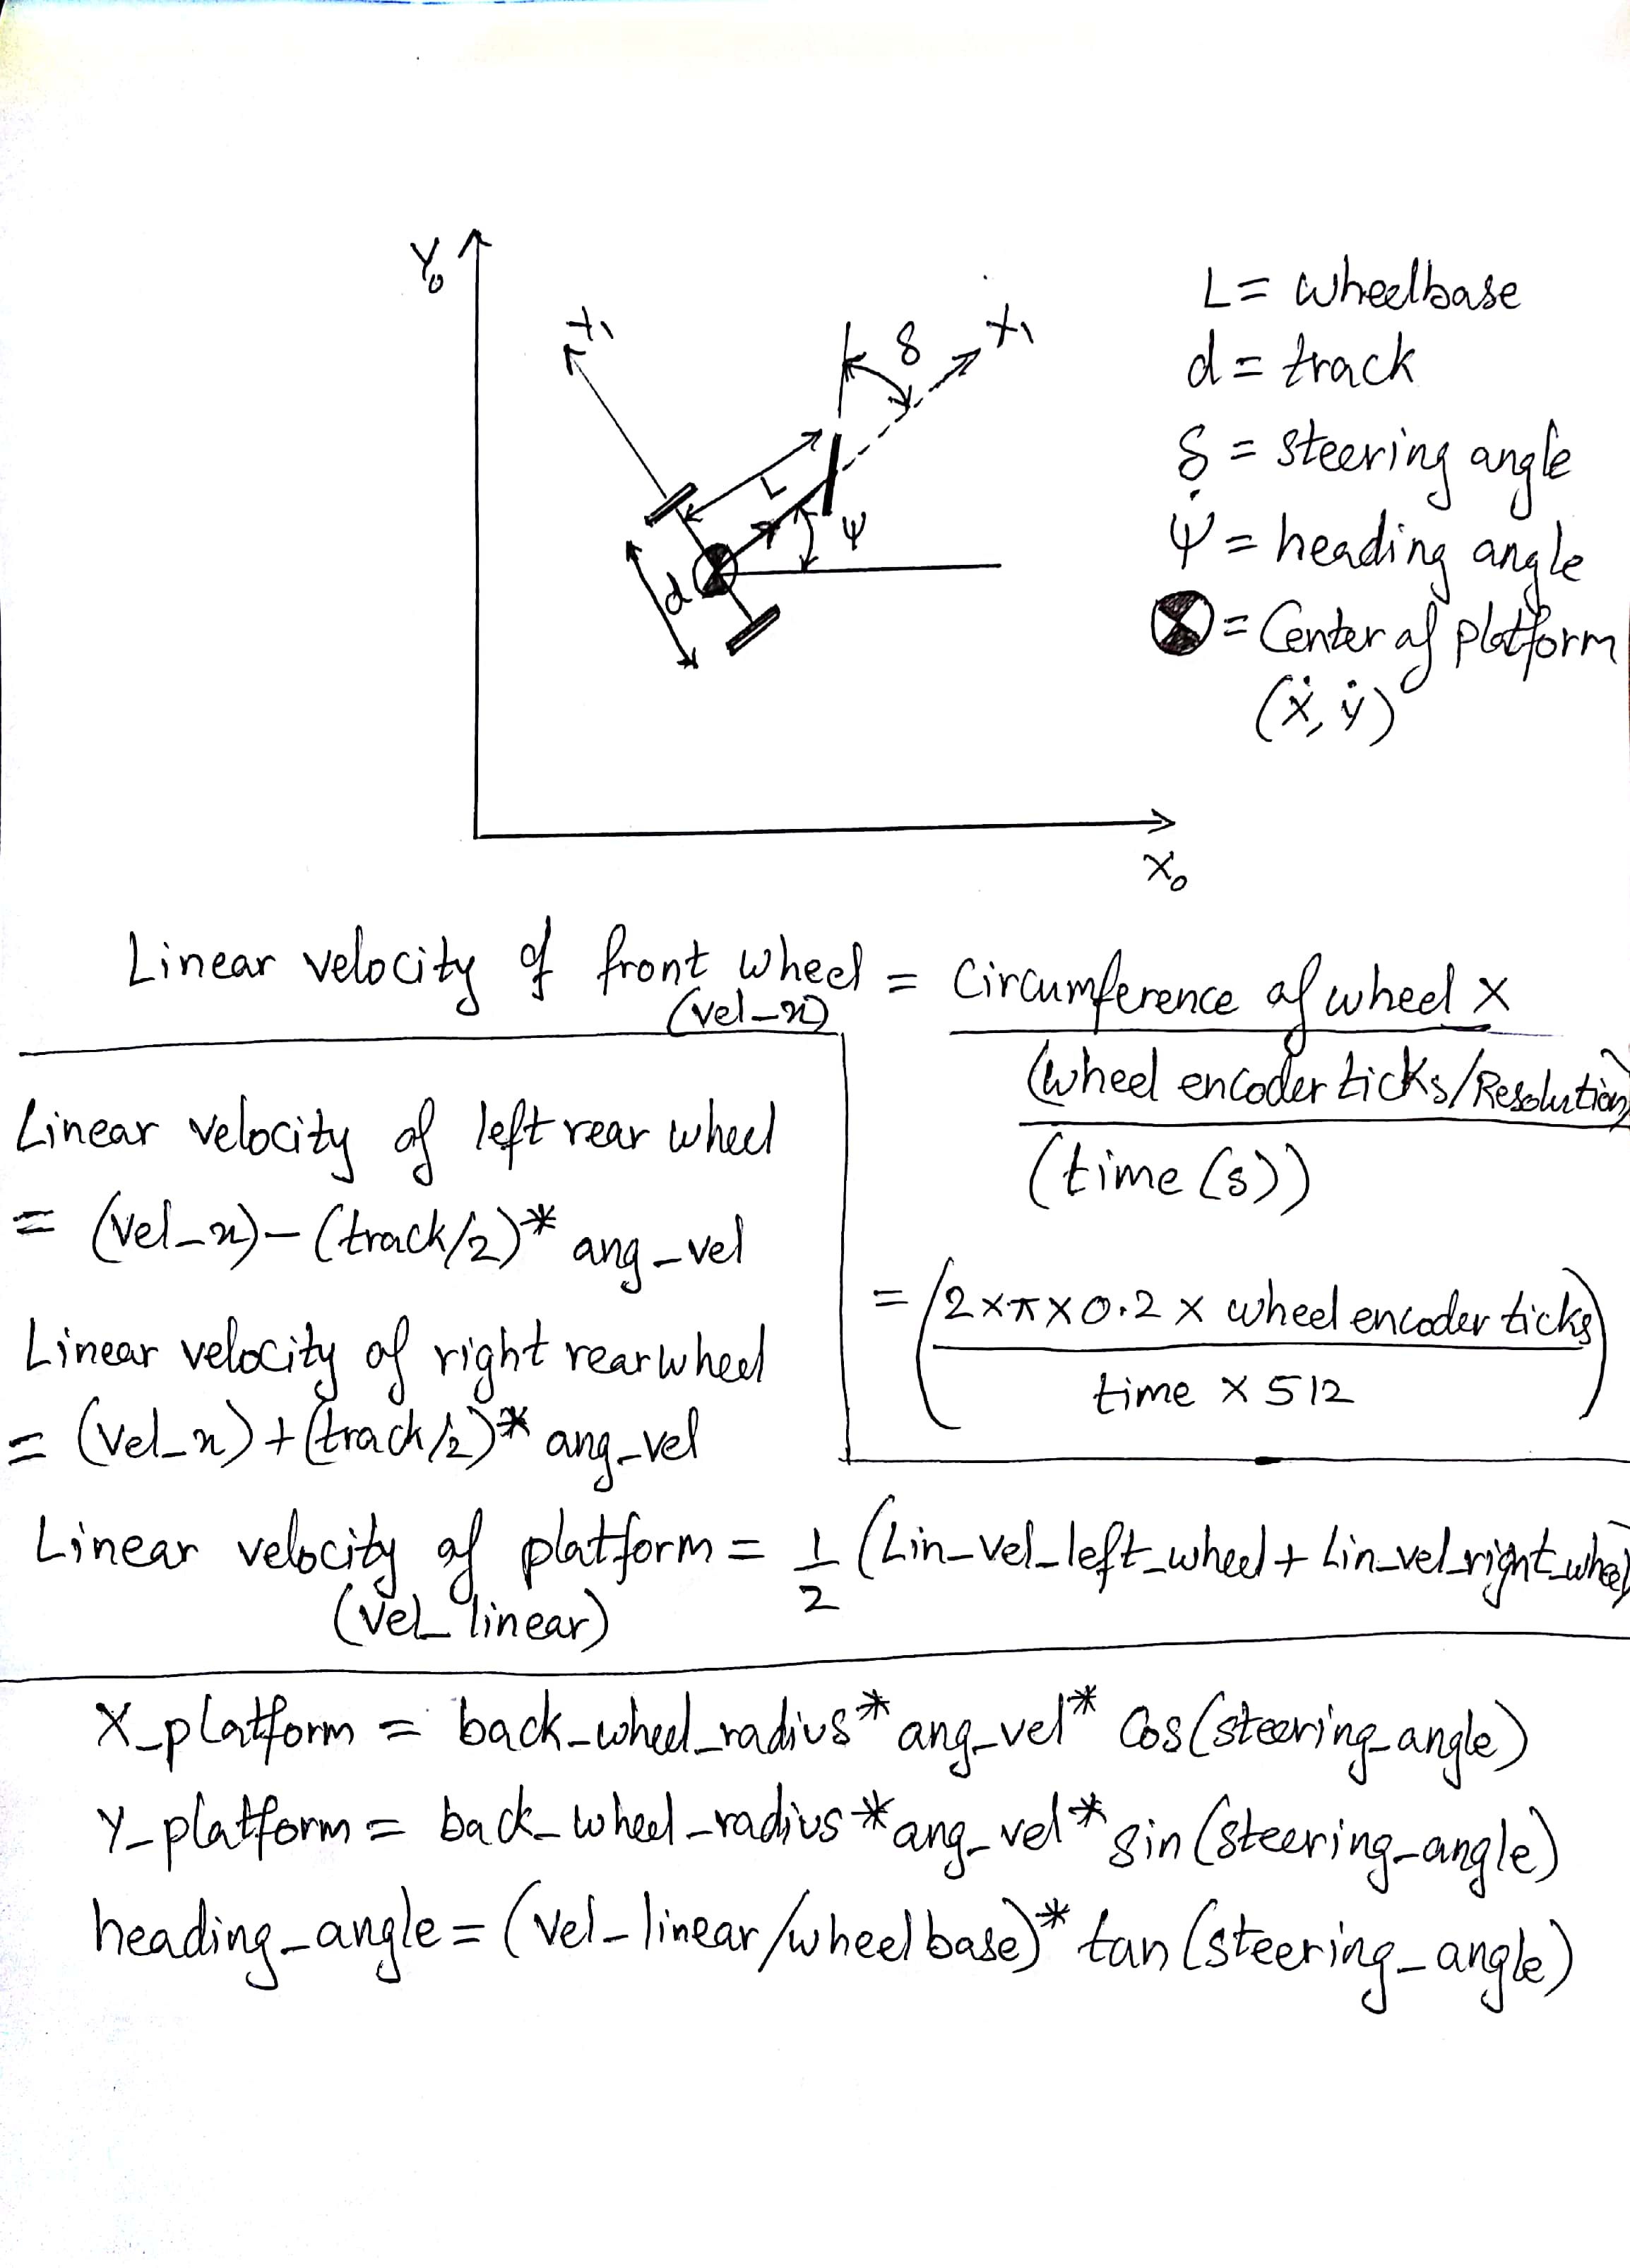 Y₀
x₁
δ
x₁
L
ψ
d
X₀
L = wheelbase
d = track
δ = steering angle
ψ̇ = heading angle
= Center of platform
(ẋ, ẏ)
Linear velocity of front wheel = Circumference of wheel x
(vel_x)
(wheel encoder ticks/Resolution)
(time (s))
= (2 x π x 0.2 x wheel encoder ticks)
time x 512
Linear velocity of left rear wheel
= (vel_x) - (track/2)* ang_vel
Linear velocity of right rear wheel
= (vel_x) + (track/2)* ang_vel
Linear velocity of platform = 1/2 (Lin_vel_left_wheel + Lin_vel_right_wheel)
(vel_linear)
X_platform = back_wheel_radius * ang_vel * Cos(steering_angle)
Y_platform = back_wheel_radius * ang_vel * sin(steering_angle)
heading_angle = (vel_linear/wheelbase)* tan(steering_angle)